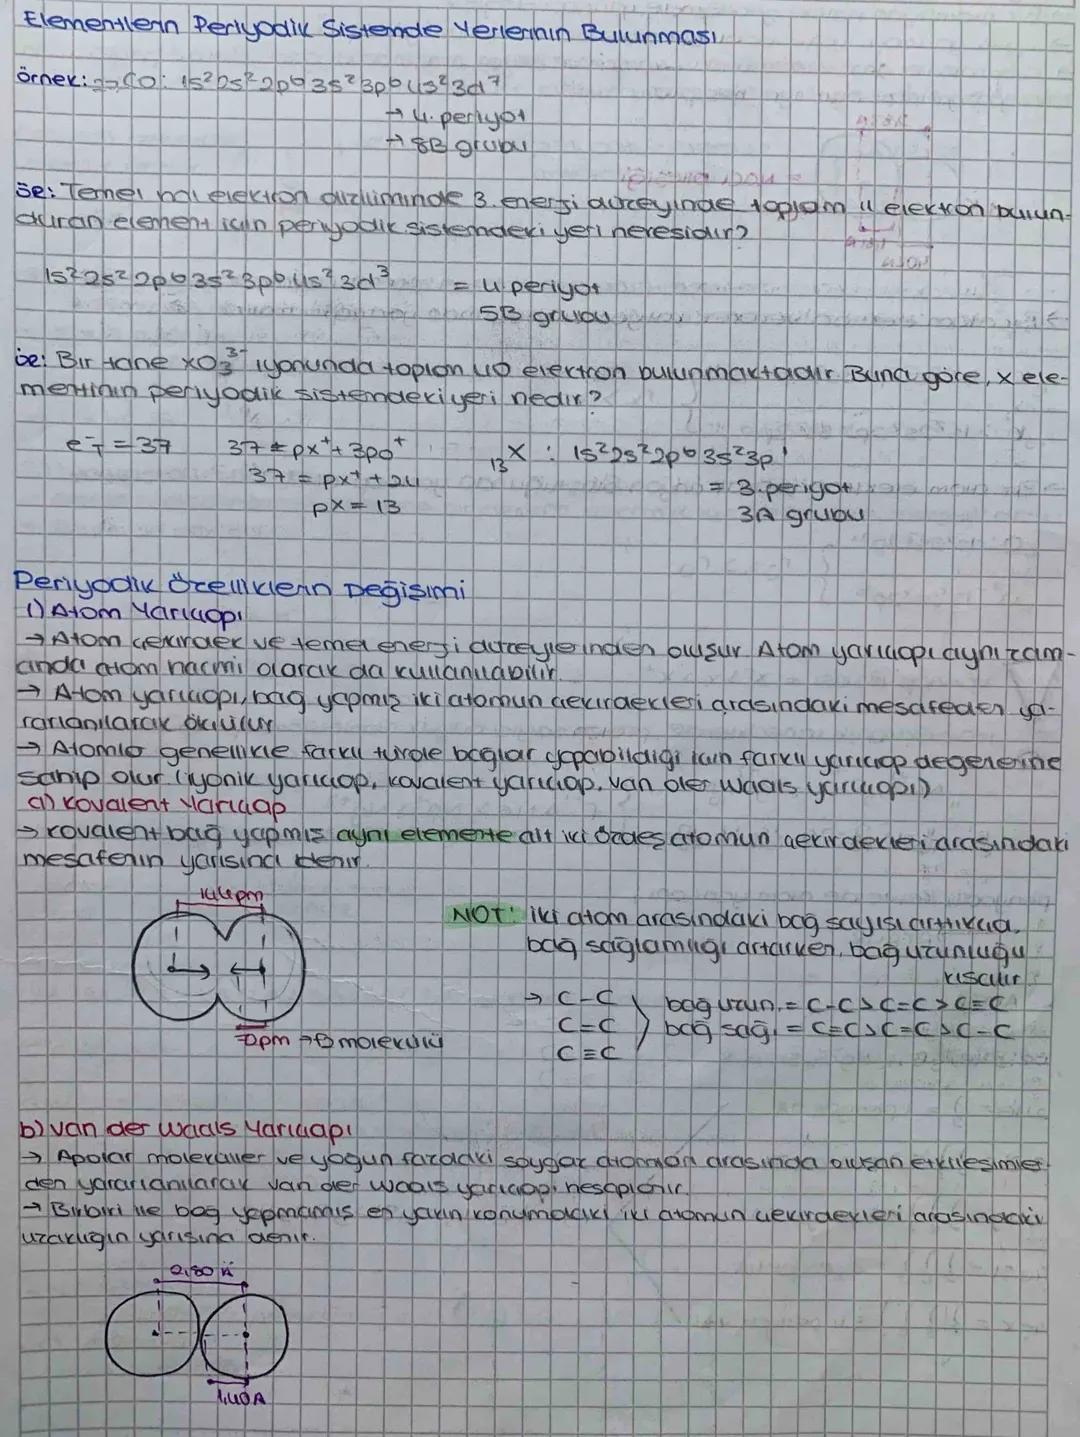 Elementlerin Periyodik Sistemde Yerlerinin Bulunması
örnek: 27CO: 1s²2s²2p⁶3s²3p⁶4s²3d⁷
→ 4. periyot
→ 8B grubu
ör: Temel hal elektron diziliminde 3. enerji düzeyinde toplam 11 elektron bulun-
duran element için periyodik sistemdeki yeri neresidir?
1s²2s²2p⁶3s²3p⁶4s²3d³ = 4 periyot
5B grubu
ör: Bir tane XO₃³⁻ iyonunda toplam 40 elektron bulunmaktadır. Buna göre, x ele-
mentinin periyodik sistemdeki yeri nedir?
e⁻T = 37 37 = px⁺ + 3po⁺ 13X : 1s²2s²2p⁶3s²3p¹
37 = px⁺ + 24 = 3. periyot
px = 13 3A grubu
Periyodik Özelliklerin Değişimi
1) Atom Yarıçapı
→ Atom çekirdek ve temel enerji düzeylerinden oluşur. Atom yarıçapı aynı zam-
anda atom hacmi olarak da kullanılabilir.
→ Atom yarıçapı, bağ yapmış iki atomun çekirdekleri arasındaki mesafeden ya-
rarlanılarak ölçülür
→ Atomlo genellikle farklı türde bağlar yapabildiği için farklı yarıçap değererine
sahip olur. (iyonik yarıçap, kovalent yarıçap, van der waals yarıçapı)
a) Kovalent Yarıçap
→ Kovalent bağ yapmış aynı elemente ait iki özdeş atomun çekirdekleri arasındaki
mesafenin yarısına denir.
144pm
NOT: İki atom arasındaki bağ sayısı arttıkça,
bağ sağlamlığı artarken, bağ uzunluğu
kısalır.
→ C-C bağ uzun. = C-C > C=C > C≡C
C=C bağ sağ. = C≡C > C=C > C-C
C≡C
pm → molekülü
b) Van der Waals Yarıçapı
→ Apolar moleküller ve yoğun fazdaki soygaz atomları arasında oluşan etkileşimler
den yararlanılarak van der Waals yarıçapı hesaplanır.
→ Birbiri ile bağ yapmamış en yakın konumdaki iki atomun çekirdekleri arasındaki
uzaklığın yarısına denir.
0,80 A
1,40A